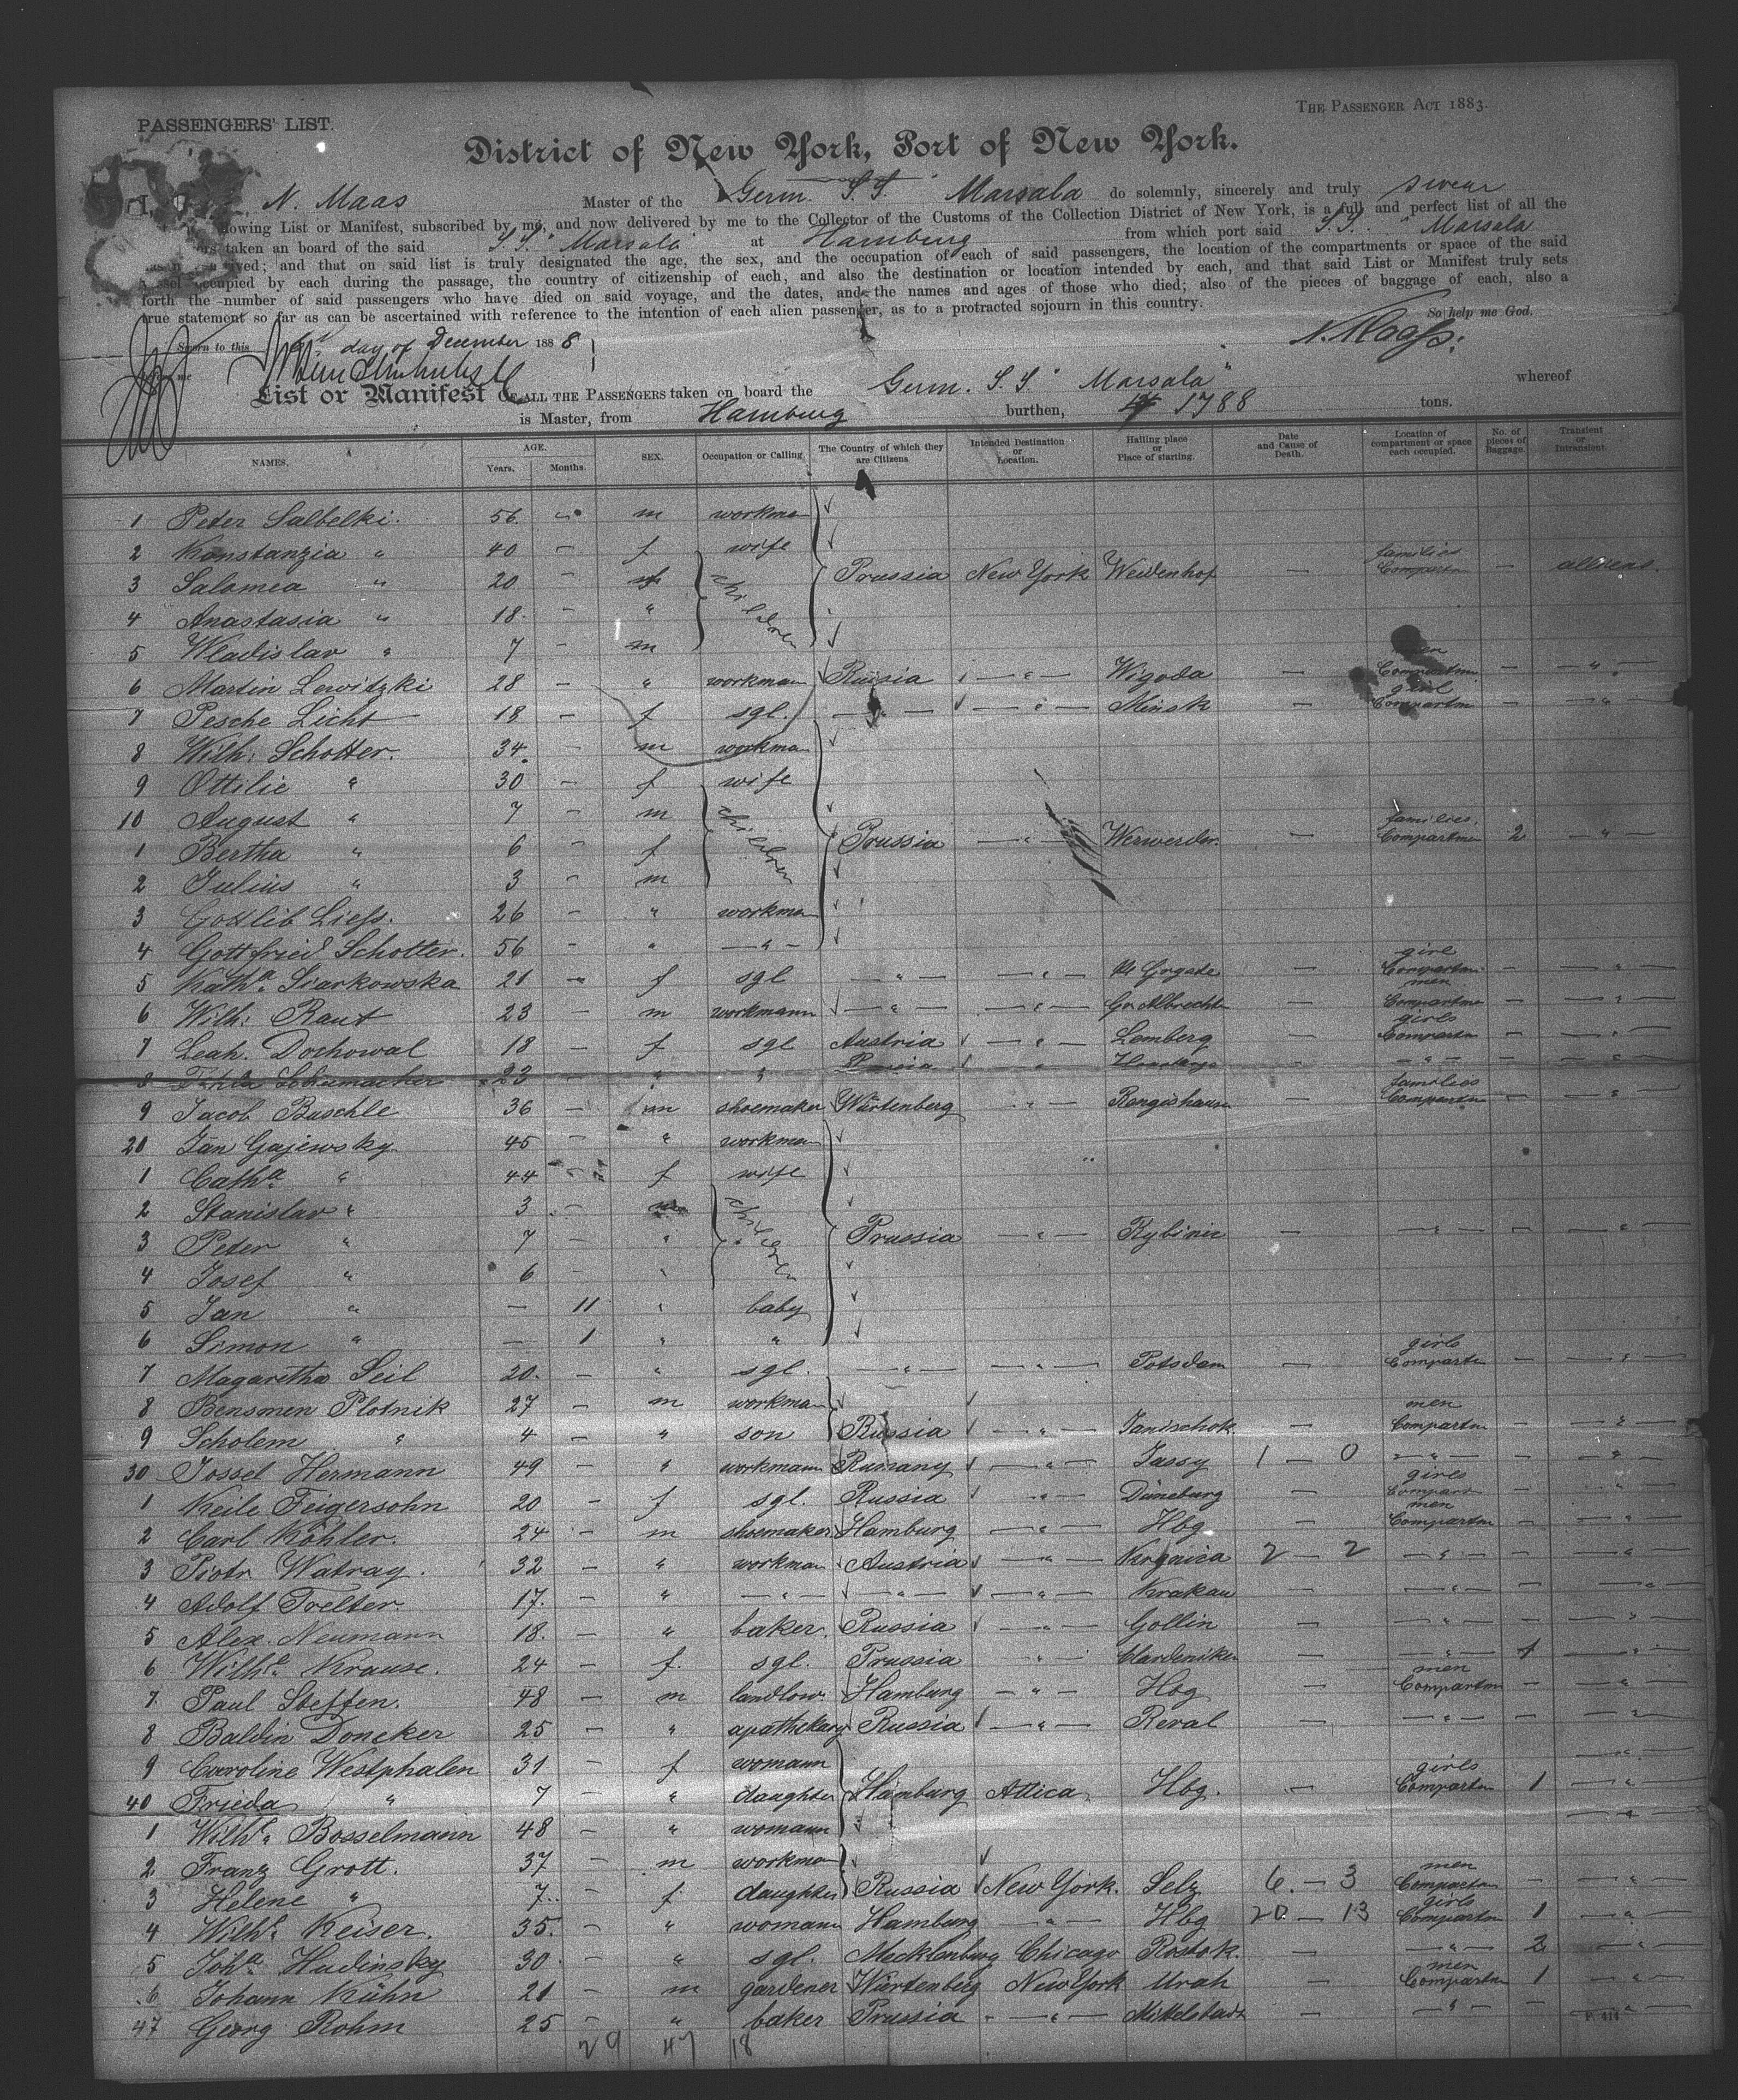 PASSENGERS' LIST.
THE PASSENGER ACT 1883.
District of New York, Port of New York.
I, N. Maas Master of the Germ. S.S. Marsala do solemnly, sincerely and truly swear
lowing List or Manifest, subscribed by me, and now delivered by me to the Collector of the Customs of the Collection District of New York, is a full and perfect list of all the
taken an board of the said S.S. "Marsala" at Hamburg from which port said S.S. "Marsala
ived; and that on said list is truly designated the age, the sex, and the occupation of each of said passengers, the location of the compartments or space of the said
occupied by each during the passage, the country of citizenship of each, and also the destination or location intended by each, and that said List or Manifest truly sets
forth the number of said passengers who have died on said voyage, and the dates, and the names and ages of those who died; also of the pieces of baggage of each, also a
true statement so far as can be ascertained with reference to the intention of each alien passenger, as to a protracted sojourn in this country.
So help me God.
Sworn to this day of December 1888
N. Maass.
List or Manifest OF ALL THE PASSENGERS taken on board the Germ. S.S. "Marsala" whereof
is Master, from Hamburg burthen, 1788 tons.
NAMES. AGE. Years. Months. SEX. Occupation or Calling The Country of which they are Citizens Intended Destination or Location. Hailing place or Place of starting. Date and Cause of Death. Location of compartment or space each occupied. No. of pieces of Baggage. Transient or Intransient.
1 Peter Salbelki. 56 m workma
2 Konstanzia " 40 — f wife
3 Salomea " 20 — f children Prussia New York Weidenhof — families Compartm —
4 Anastasia " 18. — "
5 Wladislav " 7 — m
6 Martin Lewitzki 28 — " workman Russia — " — Wigoda — men Compartm — — " —
7 Pesche Licht 18 — f sgl. — " — — " — Minsk — girl Compartm — "
8 Wilh. Schotter. 34. — m workma
9 Ottilie " 30 — f wife
10 August " 7 — m children
1 Bertha " 6 — f Prussia — " — Werwerder. — families. Compartmen 2 — " —
2 Julius " 3 — m
3 Gottlib Liess. 26 — " workman
4 Gottfried Schotter. 56 — " — " —
5 Katha. Siarkowska 21 — f sgl — " — — " — — girl Compartm — "
6 Wilh. Raut 23 — m workmann — " — — " — Gr. Albrecht — men Compartm — — " —
7 Leah. Doshowal 18 — f sgl Austria — " — Lemberg — girls Compartm — — " —
8 Schumacher 23 — " " — — " —
9 Jacob Buschle 36 — m shoemaker Würtenberg — " — Rengishausen — families Compartm — — " —
20 Jan Gajewsky 45 — " workman
1 Catha. " 44 f wife
2 Stanislav " 3 — children
3 Peter " 7 — " Prussia — " — — — " — — — " —
4 Josef " 6 — "
5 Jan " — 11 " baby
6 Simon " — 1 " "
7 Magaretha Seil 20. — " sgl. — " — — " — Potsdam — girls Compartm — — " —
8 Bensmen Plotnik 27 — m workman
9 Scholem " 4 — " son Russia — " — Janischok. — men Compartm — — " —
30 Jossel Hermann 49 — " workmann Rumany — " — Jassy 1 — 0 — " — — — " —
1 Keile Feigersohn 20 — f sgl. Russia — " — Düneburg — girls Compartm — — " —
2 Carl Köhler. 24 — m shoemaker Hamburg — " — Hbg — men Compartm — — " —
3 Piotr Watray. 32 — " workman Austria — " — 2 — 2 — " — — — " —
4 Adolf Trelter. 17. — " — " — — " — — " — Krakau — — " — — — " —
5 Alex. Neumann 18. — " baker. Russia — " — Gollin — — " — — — " —
6 Wilhe. Krause. 24 — f. sgl. Prussia " — — " — 1 — " —
7. Paul Steffen. 48 — m landlow. Hamburg — " — Hbg — men Compartm — — " —
8 Baldin Doncker 25 — " apathekary Russia — " — Reval — — " — — — " —
9 Caroline Westphalen 31 — f womann — " —
40 Frieda " 7 — " daughter Hamburg Attica Hbg. — girls Compartm 1 — " —
1 Wilhe. Bosselmann 48 — " womann — " —
2 Franz Grott. 37 — m workman
3 Helene " 7.. — f. daughter Russia New York. Selz 6. — 3 men Compartm — — " —
4 Wilhe. Keiser. 35. — " womann Hamburg — " — Hbg 20 — 13 girls Compartm 1 — " —
5 Joha. Hudinsky 30. — " sgl. Mecklenburg Chicago Rostok. — — " — 2 — " —
6 Johann Kühn 21 — m gardener Würtenberg New York Urah — men Compartm 1 — " —
47 Georg Rohm 25 — " baker Prussia — " — Mittelstadt — — " — — — " —
29 47 18
P. 414